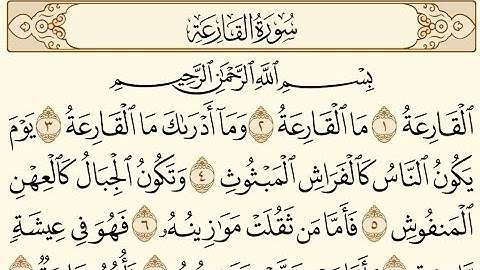 سُورَةُ القَارِعَةِ
بِسْمِ اللَّهِ الرَّحْمَٰنِ الرَّحِيمِ
الْقَارِعَةُ ١ مَا الْقَارِعَةُ ٢ وَمَا أَدْرَىٰكَ مَا الْقَارِعَةُ ٣ يَوْمَ
يَكُونُ النَّاسُ كَالْفَرَاشِ الْمَبْثُوثِ ٤ وَتَكُونُ الْجِبَالُ كَالْعِهْنِ
الْمَنفُوشِ ٥ فَأَمَّا مَن ثَقُلَتْ مَوَٰزِينُهُۥ ٦ فَهُوَ فِي عِيشَةٍ